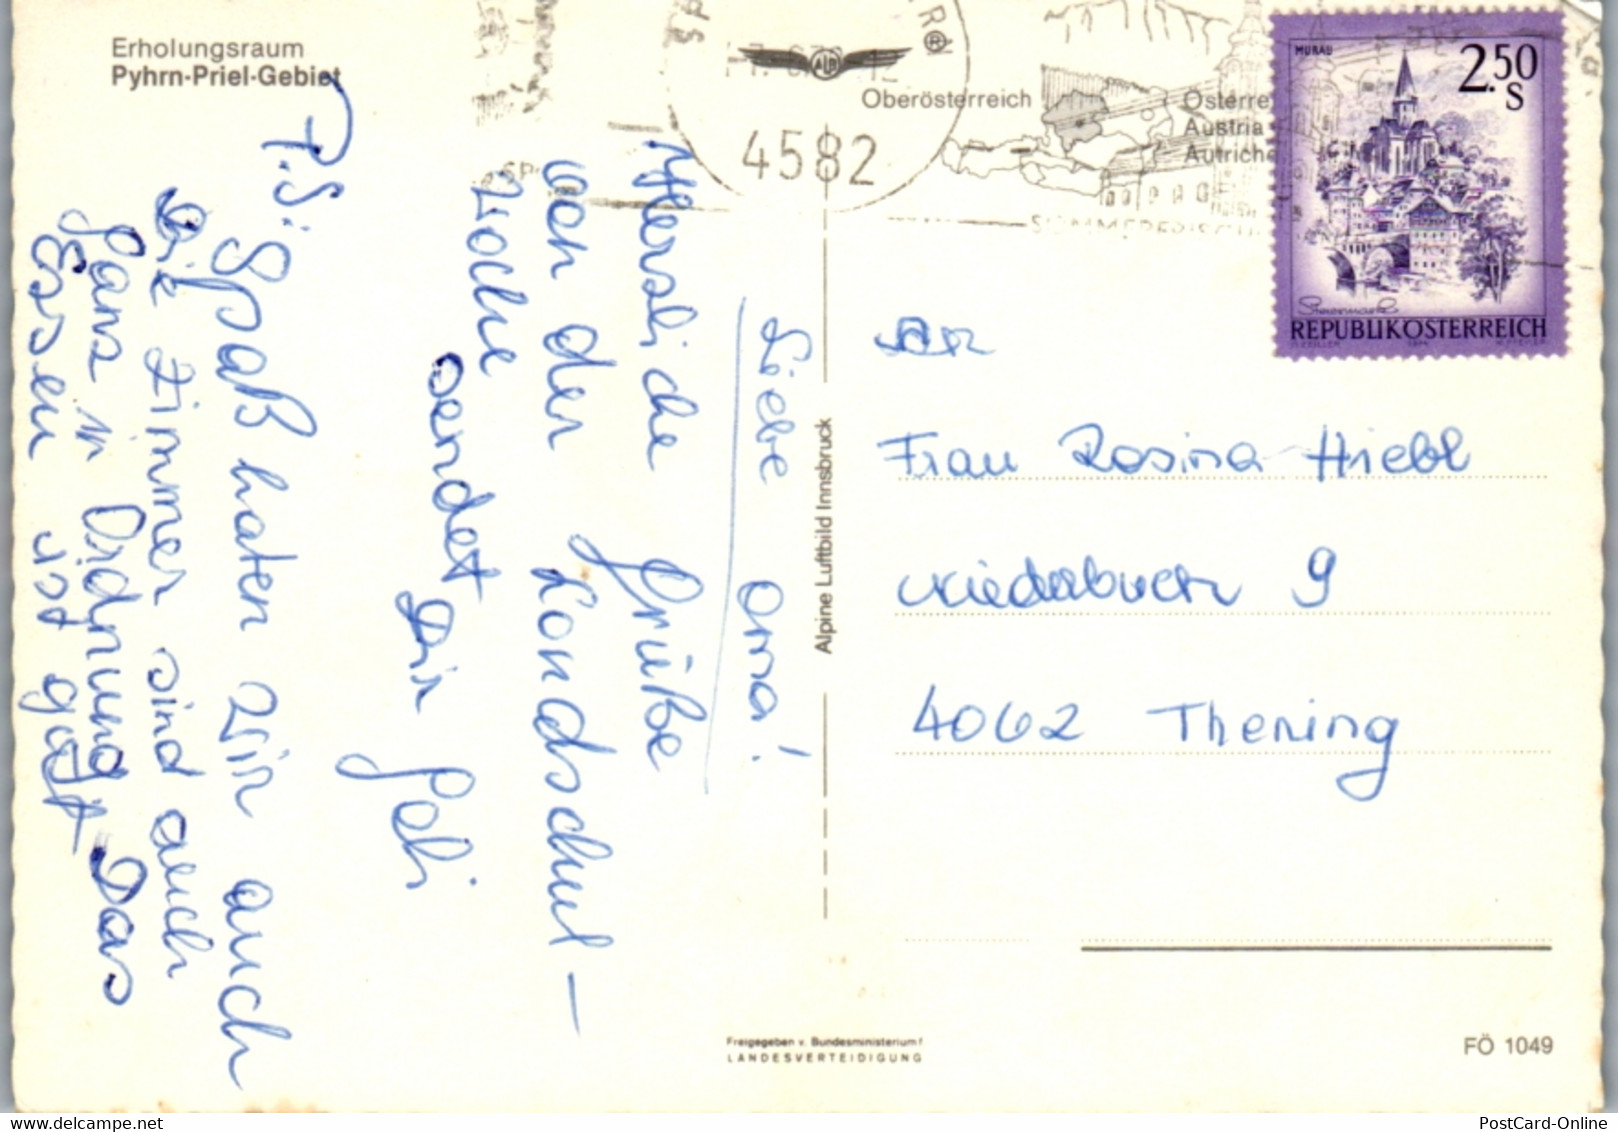 Erholungsraum
Pyhrn-Priel-Gebiet
Liebe Oma!
Herzliche Grüße
von der Landschul-
woche
sendet Dir Gabi
P.S. Spaß haten wir auch
Die Zimmer sind auch
Ganz in Ordnung Das
Essen ist gut
Alpine Luftbild Innsbruck
ALPINE
®
4582
Oberösterreich
Österre
Austria
Autriche
MURAU
2.50
S
Steiermark
REPUBLIK ÖSTERREICH
An
Frau Rosina Hiebl
Niederbuch 9
4062 Thening
Freigegeben v. Bundesministerium f
LANDESVERTEIDIGUNG
FÖ 1049
PostCard-Online
www.delcampe.net